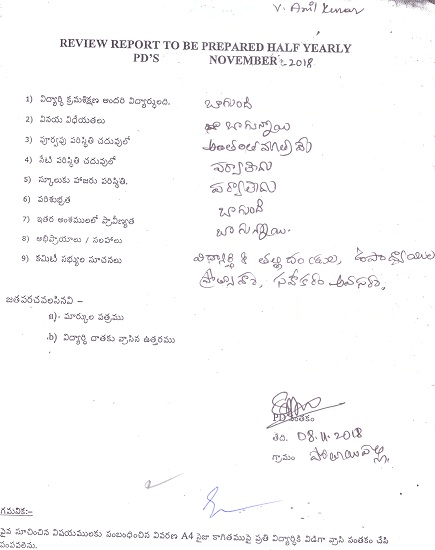 V. Anil Kumar
REVIEW REPORT TO BE PREPARED HALF YEARLY
PD'S NOVEMBER - 2018
1) విద్యార్థి క్రమశిక్షణ అందరి విద్యార్థులది. బాగుంది
2) వినయ విధేయతలు బాగున్నాయి
3) పూర్వపు పరిస్థితి చదువులో అంతంతమాత్రమే
4) నేటి పరిస్థితి చదువులో పర్వాలేదు
5) స్కూలుకు హాజరు పరిస్థితి. పర్వాలేదు
6) పరిశుభ్రత బాగుంది
7) ఇతర అంశములలో ప్రావీణ్యత బాగున్నాయి.
8) అభిప్రాయాలు / సలహాలు
9) కమిటీ సభ్యుల సూచనలు విద్యార్థికి తల్లిదండ్రులు, ఉపాధ్యాయుల
ప్రోత్సాహం, సహకారం అవసరం.
జతపరచవలసినవి –
a). మార్కుల పత్రము
b) విద్యార్థి దాతకు వ్రాసిన ఉత్తరము
PD సంతకం
తేది. 08.11.2018
గ్రామం
గమనిక:–
పైన సూచించిన విషయములకు సంబంధించిన వివరణ A4 సైజు కాగితముపై ప్రతి విద్యార్థికి విడిగా వ్రాసి సంతకం చేసి
పంపవలెను.